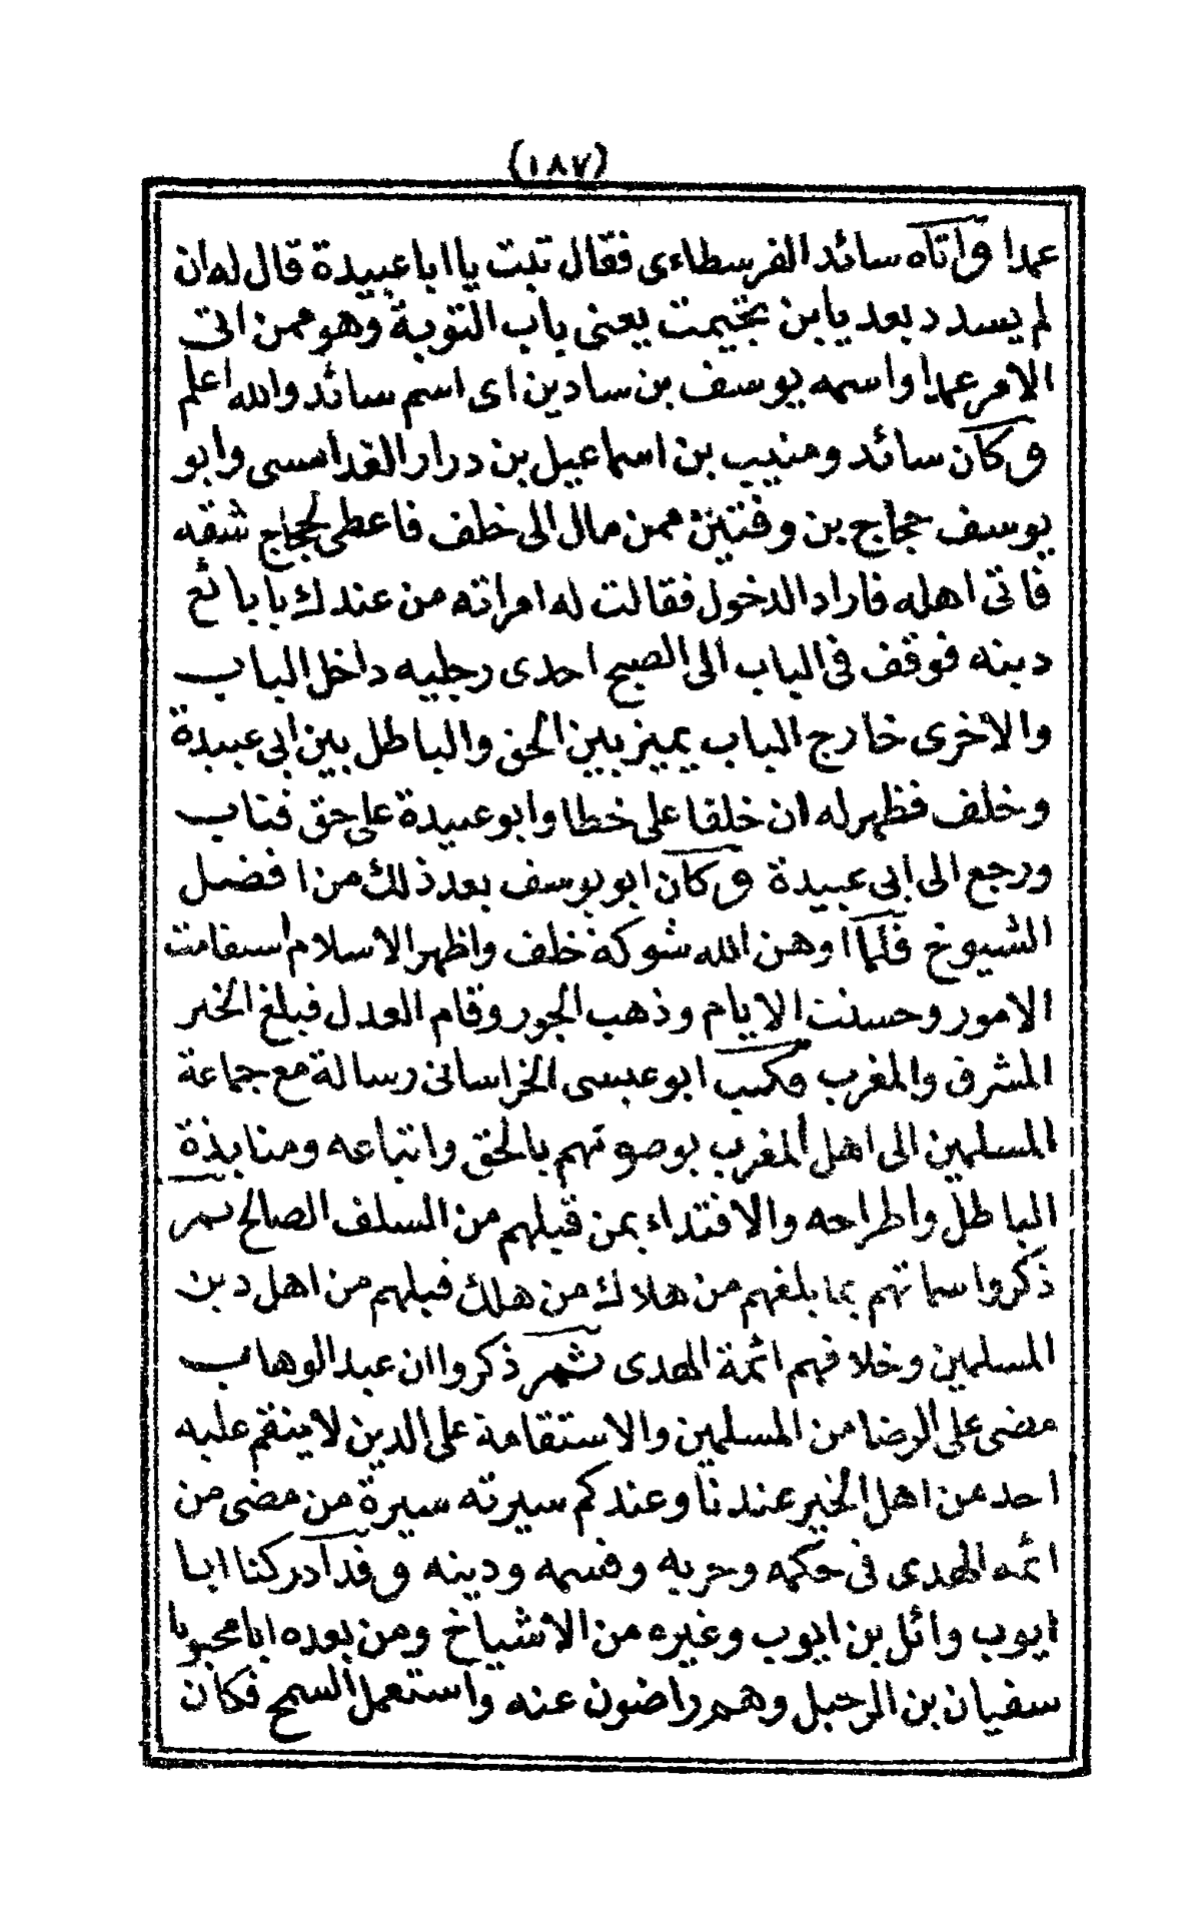 (١٨٧)
عمدا واتاه سائد الفرسطاءى فقال تبت يا ابا عبيدة قال له ان
لم يسدد بعد يابن بخيمت يعنى باب التوبة وهو ممن اتى
الامر عمدا واسمه يوسف بن سادين اى اسم سائد والله اعلم
وكان سائد ومنيب بن اسماعيل بن درار الغدامسى وابو
يوسف حجاج بن وفتين ممن مال الى خلف فاعطى لحجاج شقه
فاتى اهله فاراد الدخول فقالت له امراته من عندك يا بائع
دينه فوقف فى الباب الى الصبح احدى رجليه داخل الباب
والاخرى خارج الباب يميز بين الحق والباطل بين ابى عبيدة
وخلف فظهر له ان خلفا على خطا وابو عبيدة على حق فتاب
ورجع الى ابى عبيدة وكان ابو يوسف بعد ذلك من افضل
الشيوخ فلما اوهن الله شوكة خلف واظهر الاسلام استقامت
الامور وحسنت الايام وذهب الجور وقام العدل فبلغ الخبر
المشرق والمغرب فكتب ابو عيسى الخراسانى رسالة مع جماعة
المسلمين الى اهل المغرب يوصونهم بالحق واتباعه ومنابذة
الباطل واطراحه والاقتداء بمن قبلهم من السلف الصالح ثمر
ذكروا سماتهم بما بلغهم من هلاك من هلك قبلهم من اهل دين
المسلمين وخلافهم ائمة الهدى ثمر ذكروا ان عبد الوهاب
مضى على الرضا من المسلمين والاستقامة على الدين لا ينقم عليه
احد من اهل الخير عندنا وعندكم سيرته سيرة من مضى من
ائمه الهدى فى حكمه وحربه وقسمه ودينه وقد ادركنا ابا
ايوب وائل بن ايوب وغيره من الاشياخ ومن بعده ابا محبوبا
سفيان بن الرحيل وهم راضون عنه واستعمل السمح فكان